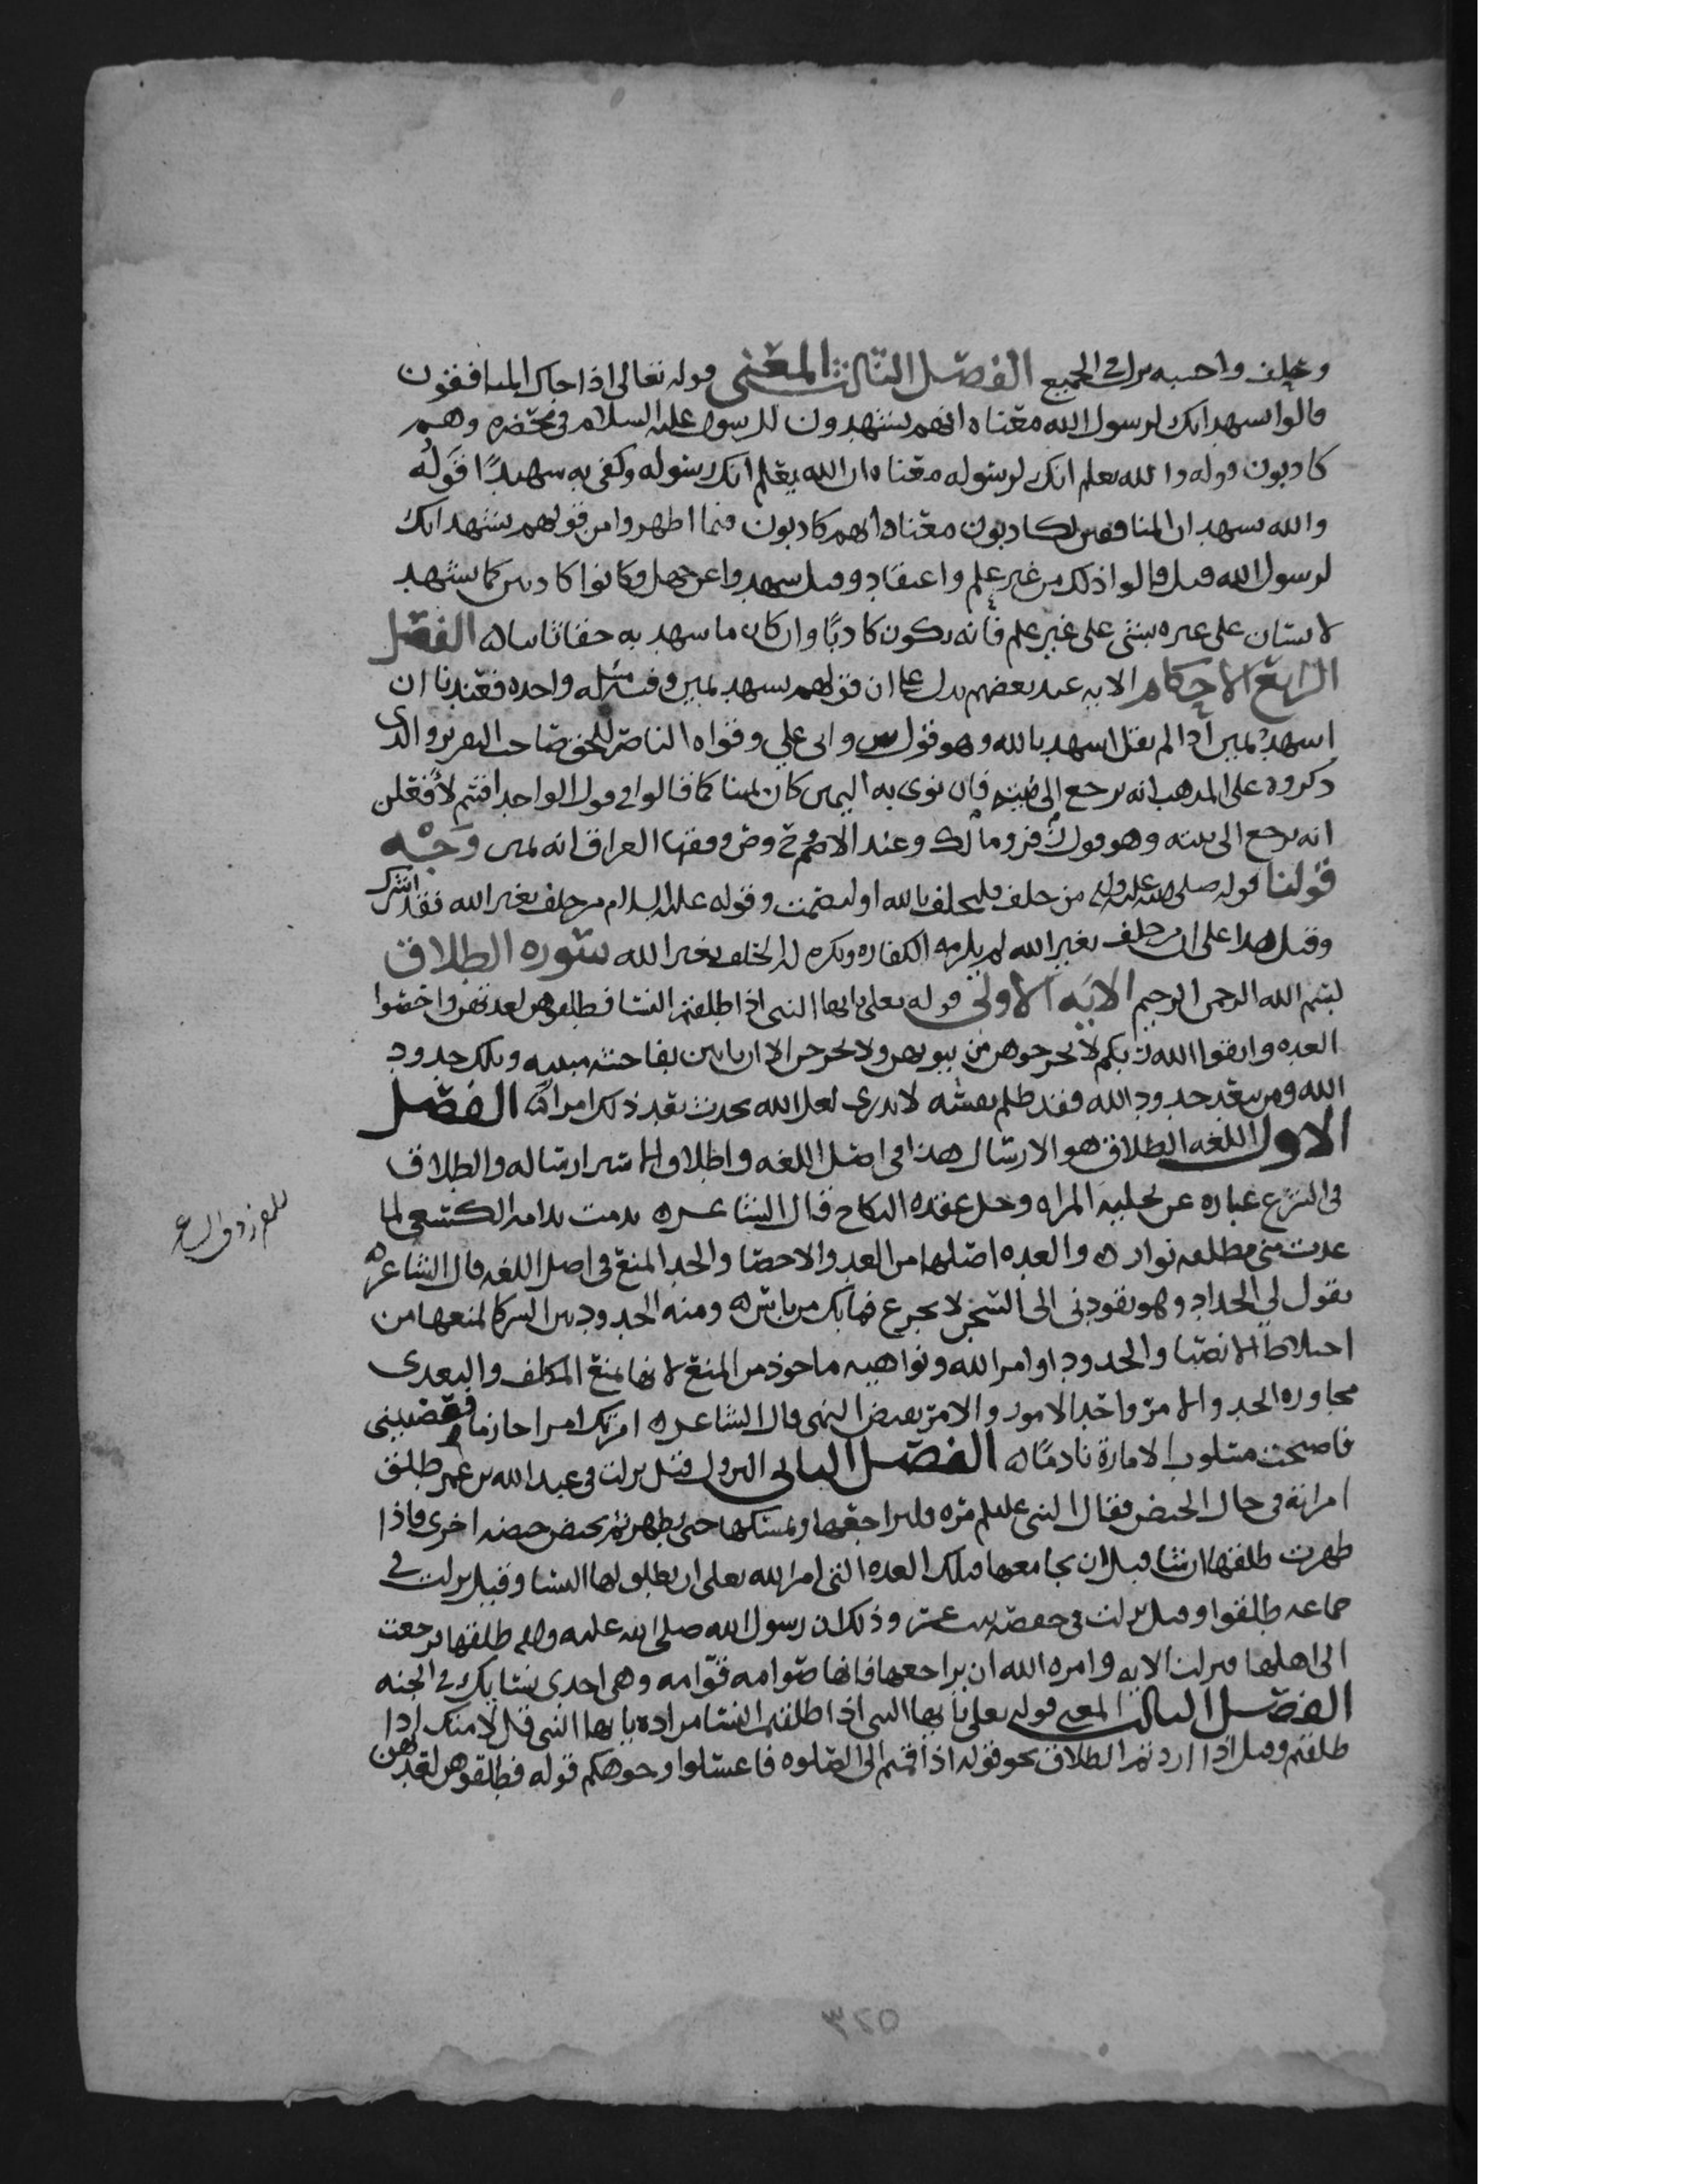 وحلف واحسبه نزلت في الجميع الفصل الثالث المعنى قوله تعالى اذا جاك المنافقون
قالوا نشهد انك لرسول الله معناه انهم يشهدون للرسول عليه السلام في محضره وهم
كاذبون قوله والله يعلم انك لرسوله معناه ان الله يعلم انك رسوله وكفى به شهيدًا قوله
والله يشهد ان المنافقين لكاذبون معناه انهم كاذبون فيما اظهروا من قولهم نشهد انك
لرسول الله قيل قالوا ذلك من غير علم واعتقاد وقيل شهدوا عن جهل وكانوا كاذبين كما يشهد
لانسان على غيره بشي على غير علم فانه يكون كاذبًا وان كان ما شهد به حقا ثابتا الفصل
الرابع الاحكام الايه عند بعضهم تدل على ان قولهم نشهد يمين وفيه مسئله واحده فعندنا ان
اشهد يمين اذا لم يقل اشهد بالله وهو قول س وابي علي وقواه الناصر للحق صاحب التقرير والذي
ذكروه على المذهب انه يرجع الى نيته فان نوى به اليمين كان يمينا كما قالوا في قول الواحد اقسم لأفعلن
انه يرجع الى نيته وهو قول ك فر ومالك وعند الاصم ح وص وفقها العراق انه يمين وَجْه
قولنا قوله صلى الله عليه واله من حلف فليحلف بالله او ليصمت وقوله عليه السلام من حلف بغير الله فقد اشرك
وقيل هذا على ان من حلف بغير الله لم يلزمه الكفاره ويكره له الحلف بغير الله سوره الطلاق
بسم الله الرحمن الرحيم الايه الاولى قوله تعلى يايها النبي اذا طلقتم النسا فطلقوهن لعدتهن واحصوا
العده واتقوا الله ربكم لا تخرجوهن من بيوتهن ولا يخرجن الا ان ياتين بفاحشه مبينه وتلك حدود
الله ومن يتعد حدود الله فقد ظلم نفسه لا تدري لعل الله يحدث بعد ذلك امراً الفصل
الاول اللغه الطلاق هو الارسال هذا في اصل اللغه واطلاق الاسير ارساله والطلاق
في الشرع عباره عن تخليه المراه وحل عقده النكاح قال الشاعر ندمت ندامه الكسعي لما
غدت مني مطلقه نوار والعده اصلها من العد والاحصا والحد المنع في اصل اللغه قال الشاعر
يقول لي الحداد وهو يقودني الى السجن لا تجزع فما بك من باس ومنه الحدود بين الشركا لمنعها من
اختلاط الانصبا والحدود اوامر الله ونواهيه ماخوذ من المنع لانها تمنع المكلف والتعدي
مجاوزه الحد والامر واحد الامور والامر نقيض النهي قال الشاعر امرتك امرا حازما فعصيتني
فاصبحت مسلوب الامارة نادمًا الفصل الثاني النزول قيل نزلت في عبد الله بن عمر طلق
امراته في حال الحيض فقال النبي عليلم مره فليراجعها ويمسكها حتى تطهر ثم تحيض حيضه اخرى فاذا
طهرت طلقها ان شا قبل ان يجامعها فتلك العده التي امر الله تعلى ان يطلق لها النسا وقيل نزلت في
جماعه طلقوا وقيل نزلت في حفصه بنت عمر وذلك ان رسول الله صلى الله عليه واله طلقها فرجعت
الى اهلها فنزلت الايه وامره الله ان يراجعها فانها صوامه قوامه وهي احدى نسايك في الجنه
الفصل الثالث المعنى قوله تعلى يايها النبي اذا طلقتم النسا مراده يايها النبي قل لامتك اذا
طلقتم وقيل اذا اردتم الطلاق نحو قوله اذا قمتم الى الصلوه فاغسلوا وجوهكم قوله فطلقوهن لعدتهن
للفرزدق
٣٢٥